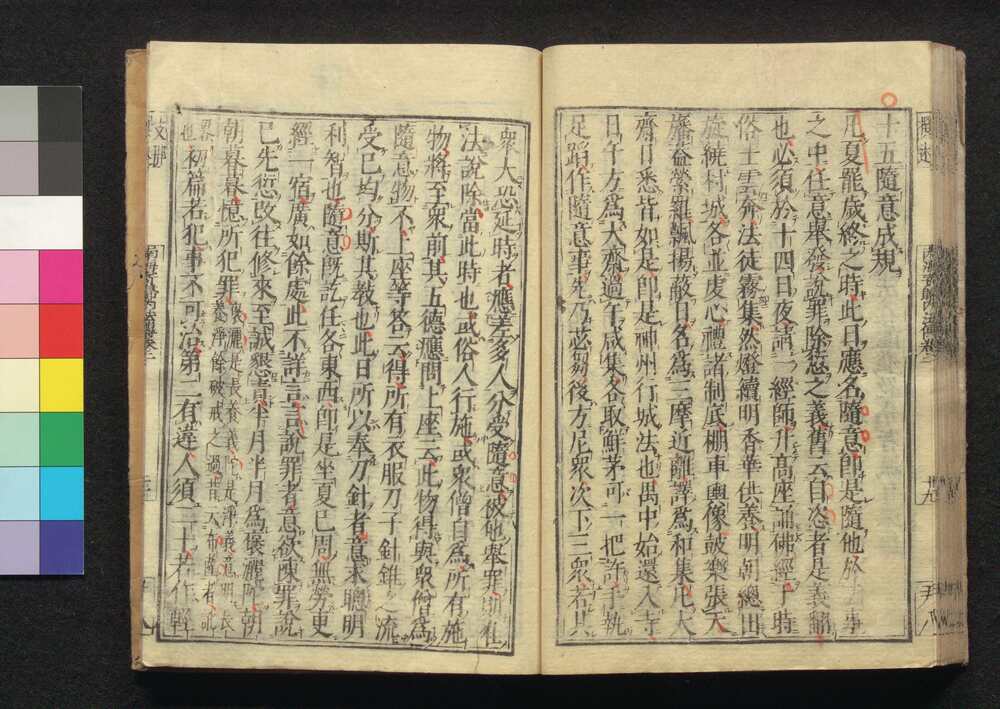 十五隨意成規
凡夏罷歲終之時此日應名隨意即是隨他於三事
之中任意舉發說罪除愆之義舊云自恣者是義翻
也必須於十四日夜請一經師升高座誦佛經于時
俗士雲奔法徒霧集然燈續明香華供養明朝總出
旋繞村城各並虔心禮諸制底棚車輿像鼓樂張天
幡蓋縈羅飄揚蔽日名為三摩近離譯為和集凡大
齋日悉皆如是即是神州行城法也禺中始還入寺
日午方為大齋過午咸集各取鮮茅可一把許手執
足蹈作隨意事先乃苾芻後方尼眾次下三眾若其
眾大恐延時者應差多人分受隨意被他舉罪則准
法說除當此時也或俗人行施或眾僧自為所有施
物將至眾前其五德應問上座云此物得與眾僧為
隨意物不上座等答云得所有衣服刀子針錐之流
受已均分斯其教也此日所以奉刀針者意求聰明
利智也隨意既訖任各東西即是坐夏已周無勞更
經一宿廣如餘處此不詳言言說罪者意欲陳罪說
已先愆改往修來至誠懇責半月半月為褒灑陀朝
朝暮暮憶所犯罪
初篇若犯事不可治第二有違人須二十若作輕